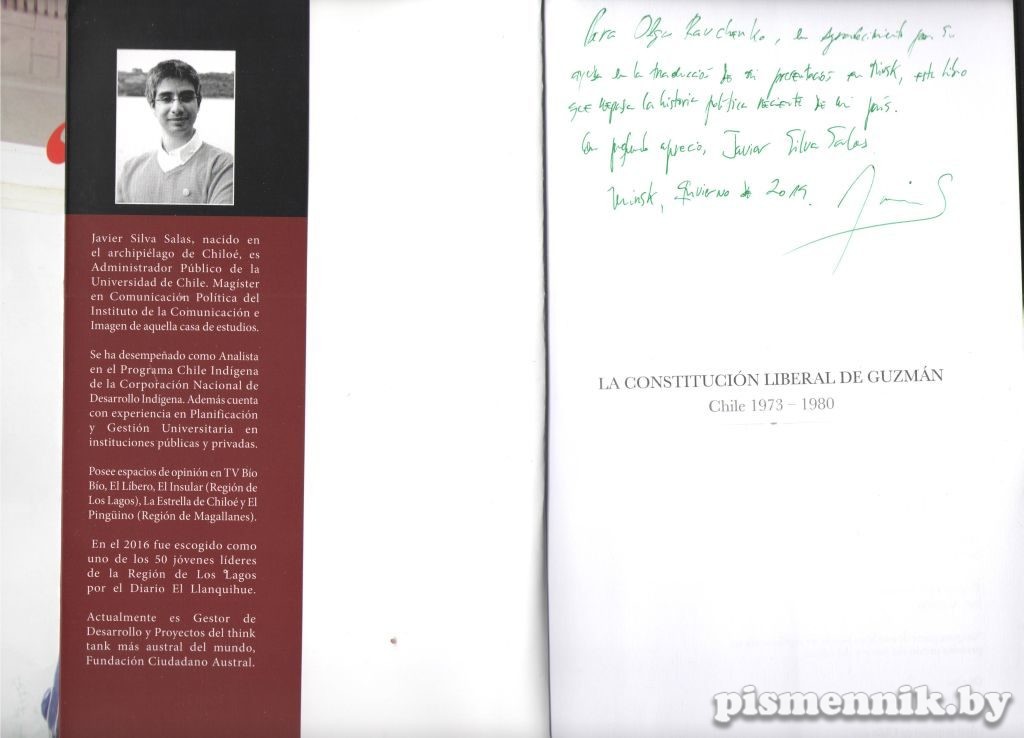 Javier Silva Salas, nacido en
el archipiélago de Chiloé, es
Administrador Público de la
Universidad de Chile. Magíster
en Comunicación Política del
Instituto de la Comunicación e
Imagen de aquella casa de estudios.
Se ha desempeñado como Analista
en el Programa Chile Indígena
de la Corporación Nacional de
Desarrollo Indígena. Además cuenta
con experiencia en Planificación
y Gestión Universitaria en
instituciones públicas y privadas.
Posee espacios de opinión en TV Bío
Bío, El Líbero, El Insular (Región de
Los Lagos), La Estrella de Chiloé y El
Pingüino (Región de Magallanes).
En el 2016 fue escogido como
uno de los 50 jóvenes líderes
de la Región de Los Lagos
por el Diario El Llanquihue.
Actualmente es Gestor de
Desarrollo y Proyectos del think
tank más austral del mundo,
Fundación Ciudadano Austral.
Para Olga Ravchenko, en agradecimiento por su
ayuda en la traducción de mi presentación en Minsk, este libro
que repasa la historia política reciente de mi país.
Con profundo aprecio, Javier Silva Salas
Minsk, de 2019.
LA CONSTITUCIÓN LIBERAL DE GUZMÁN
Chile 1973 – 1980
pismennik.by